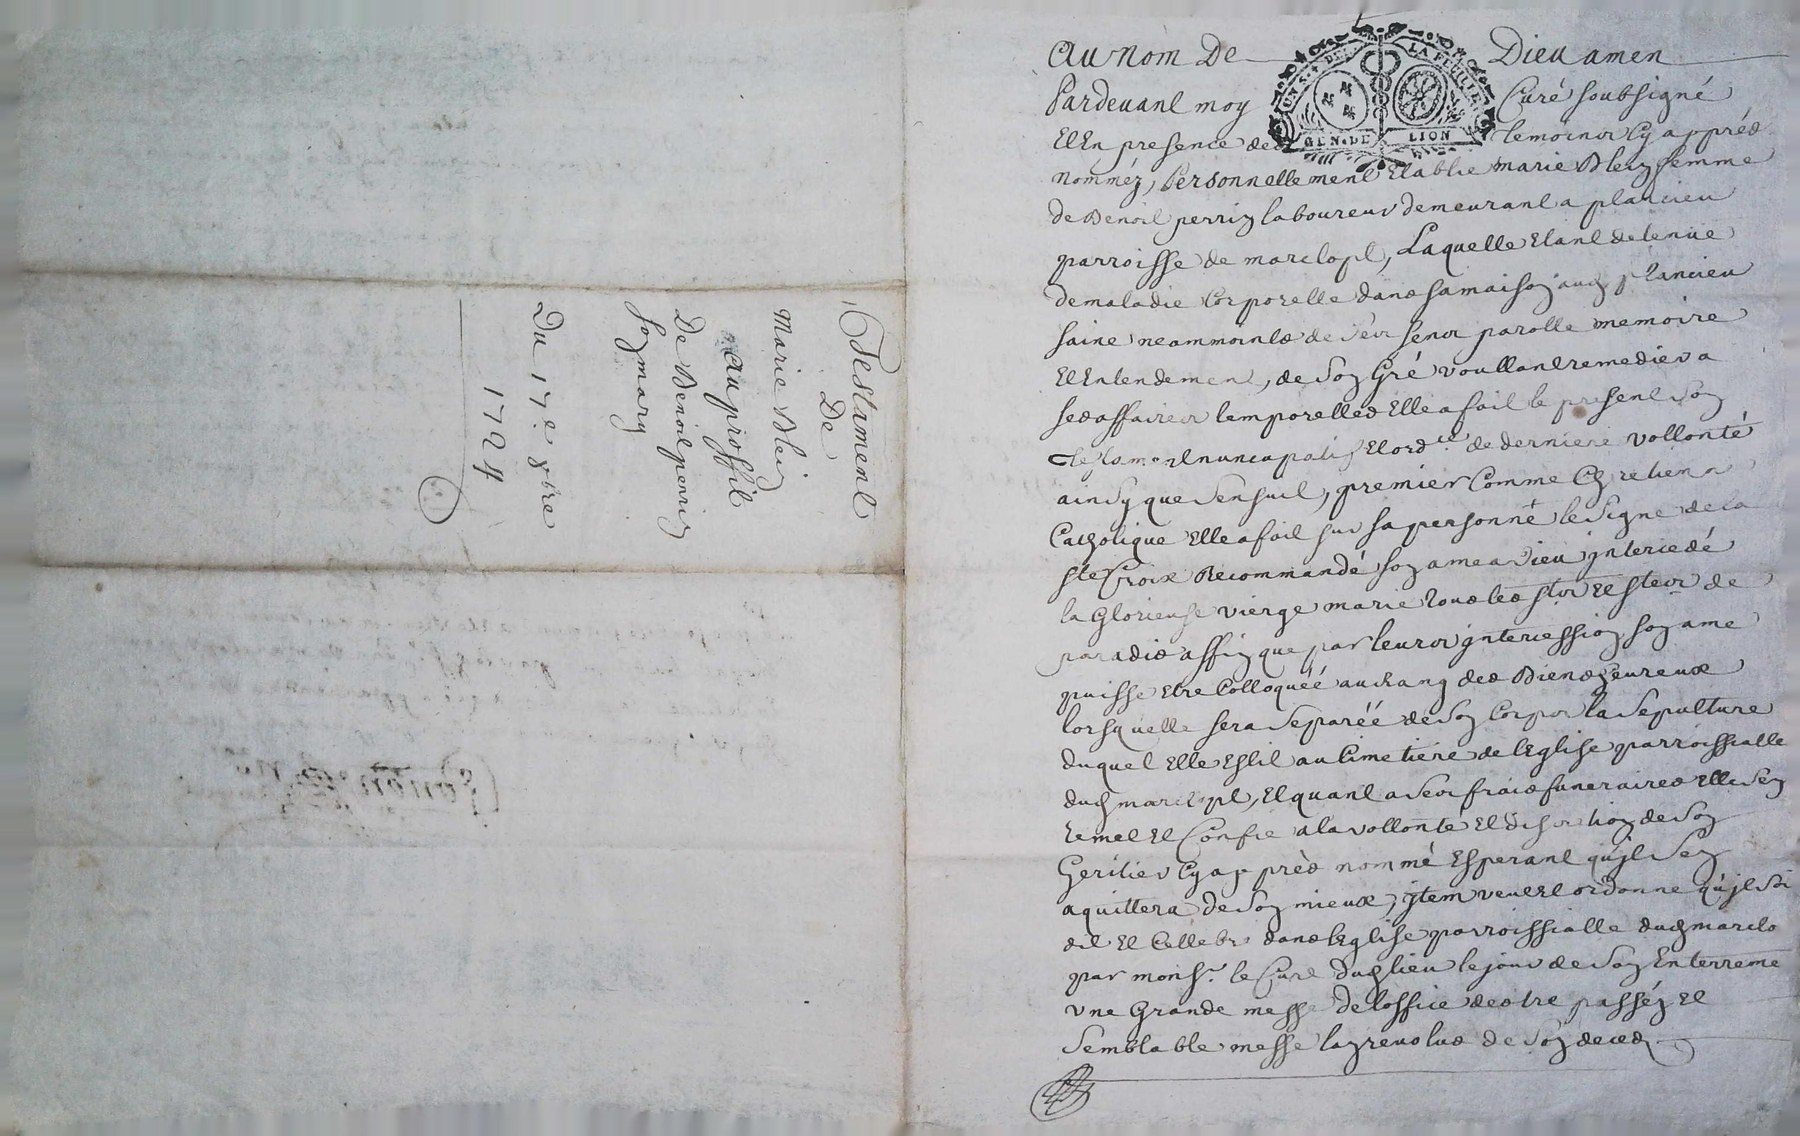 Testament
De
Marie Blein
au proffit
De Benoit perrin
son mary
Du 17e 8bre
1724
Au nom De Dieu amen
UN S. + DE. LA FEUILLE
GEN. DE LION
Pardevant moy Curé soubsigné
Et En presence des temoins Cy apprés
nómméz, Personnellement Etablie marie Blein femme
de Benoit perrin laboureur demeurant a plancieu
parroisse de marclopt, Laquelle Etant detenüe
de maladie Corporelle dans sa maison aud plancieu
saine neammoints de ses sens parolle memoire
Et Entendement, de son Gré voullant remedier a
ses affaires temporelles Elle a fait le present son
testament nuncupatif Et ord.re de derniere vollonté
ainsy que sensuit, premier Comme Chretienne
Catholique Elle a fait sur sa personne le signe de la
ste Croix Recommandé son ame a Dieu jntercedé
la Glorieuse vierge marie tous les sts Et stes de
paradis affin que par leurs jntercession son ame
puisse Etre Colloquéé au Rang des Bienheureux
lorsquelle sera separéé de son Corps la sepulture
duquel Elle Eslit au Cimetiere de lEglise parroissialle
dud marclopt, Et quant a ses frais funeraires Elle sen
remet Et Confie a la vollonté Et discretion de son
heritier Cy apprès nommé Esperant qujl sen
aquittera de son mieux, jtem veut Et ordonne qujl soi
dit Et Cellebré dans lEglise parroissialle dud marclo
par monsr. le Curé dud lieu le jour de son Enterreme
vne Grande messe de loffice des tre passéz Et
semblable messe lan revolus de son deced